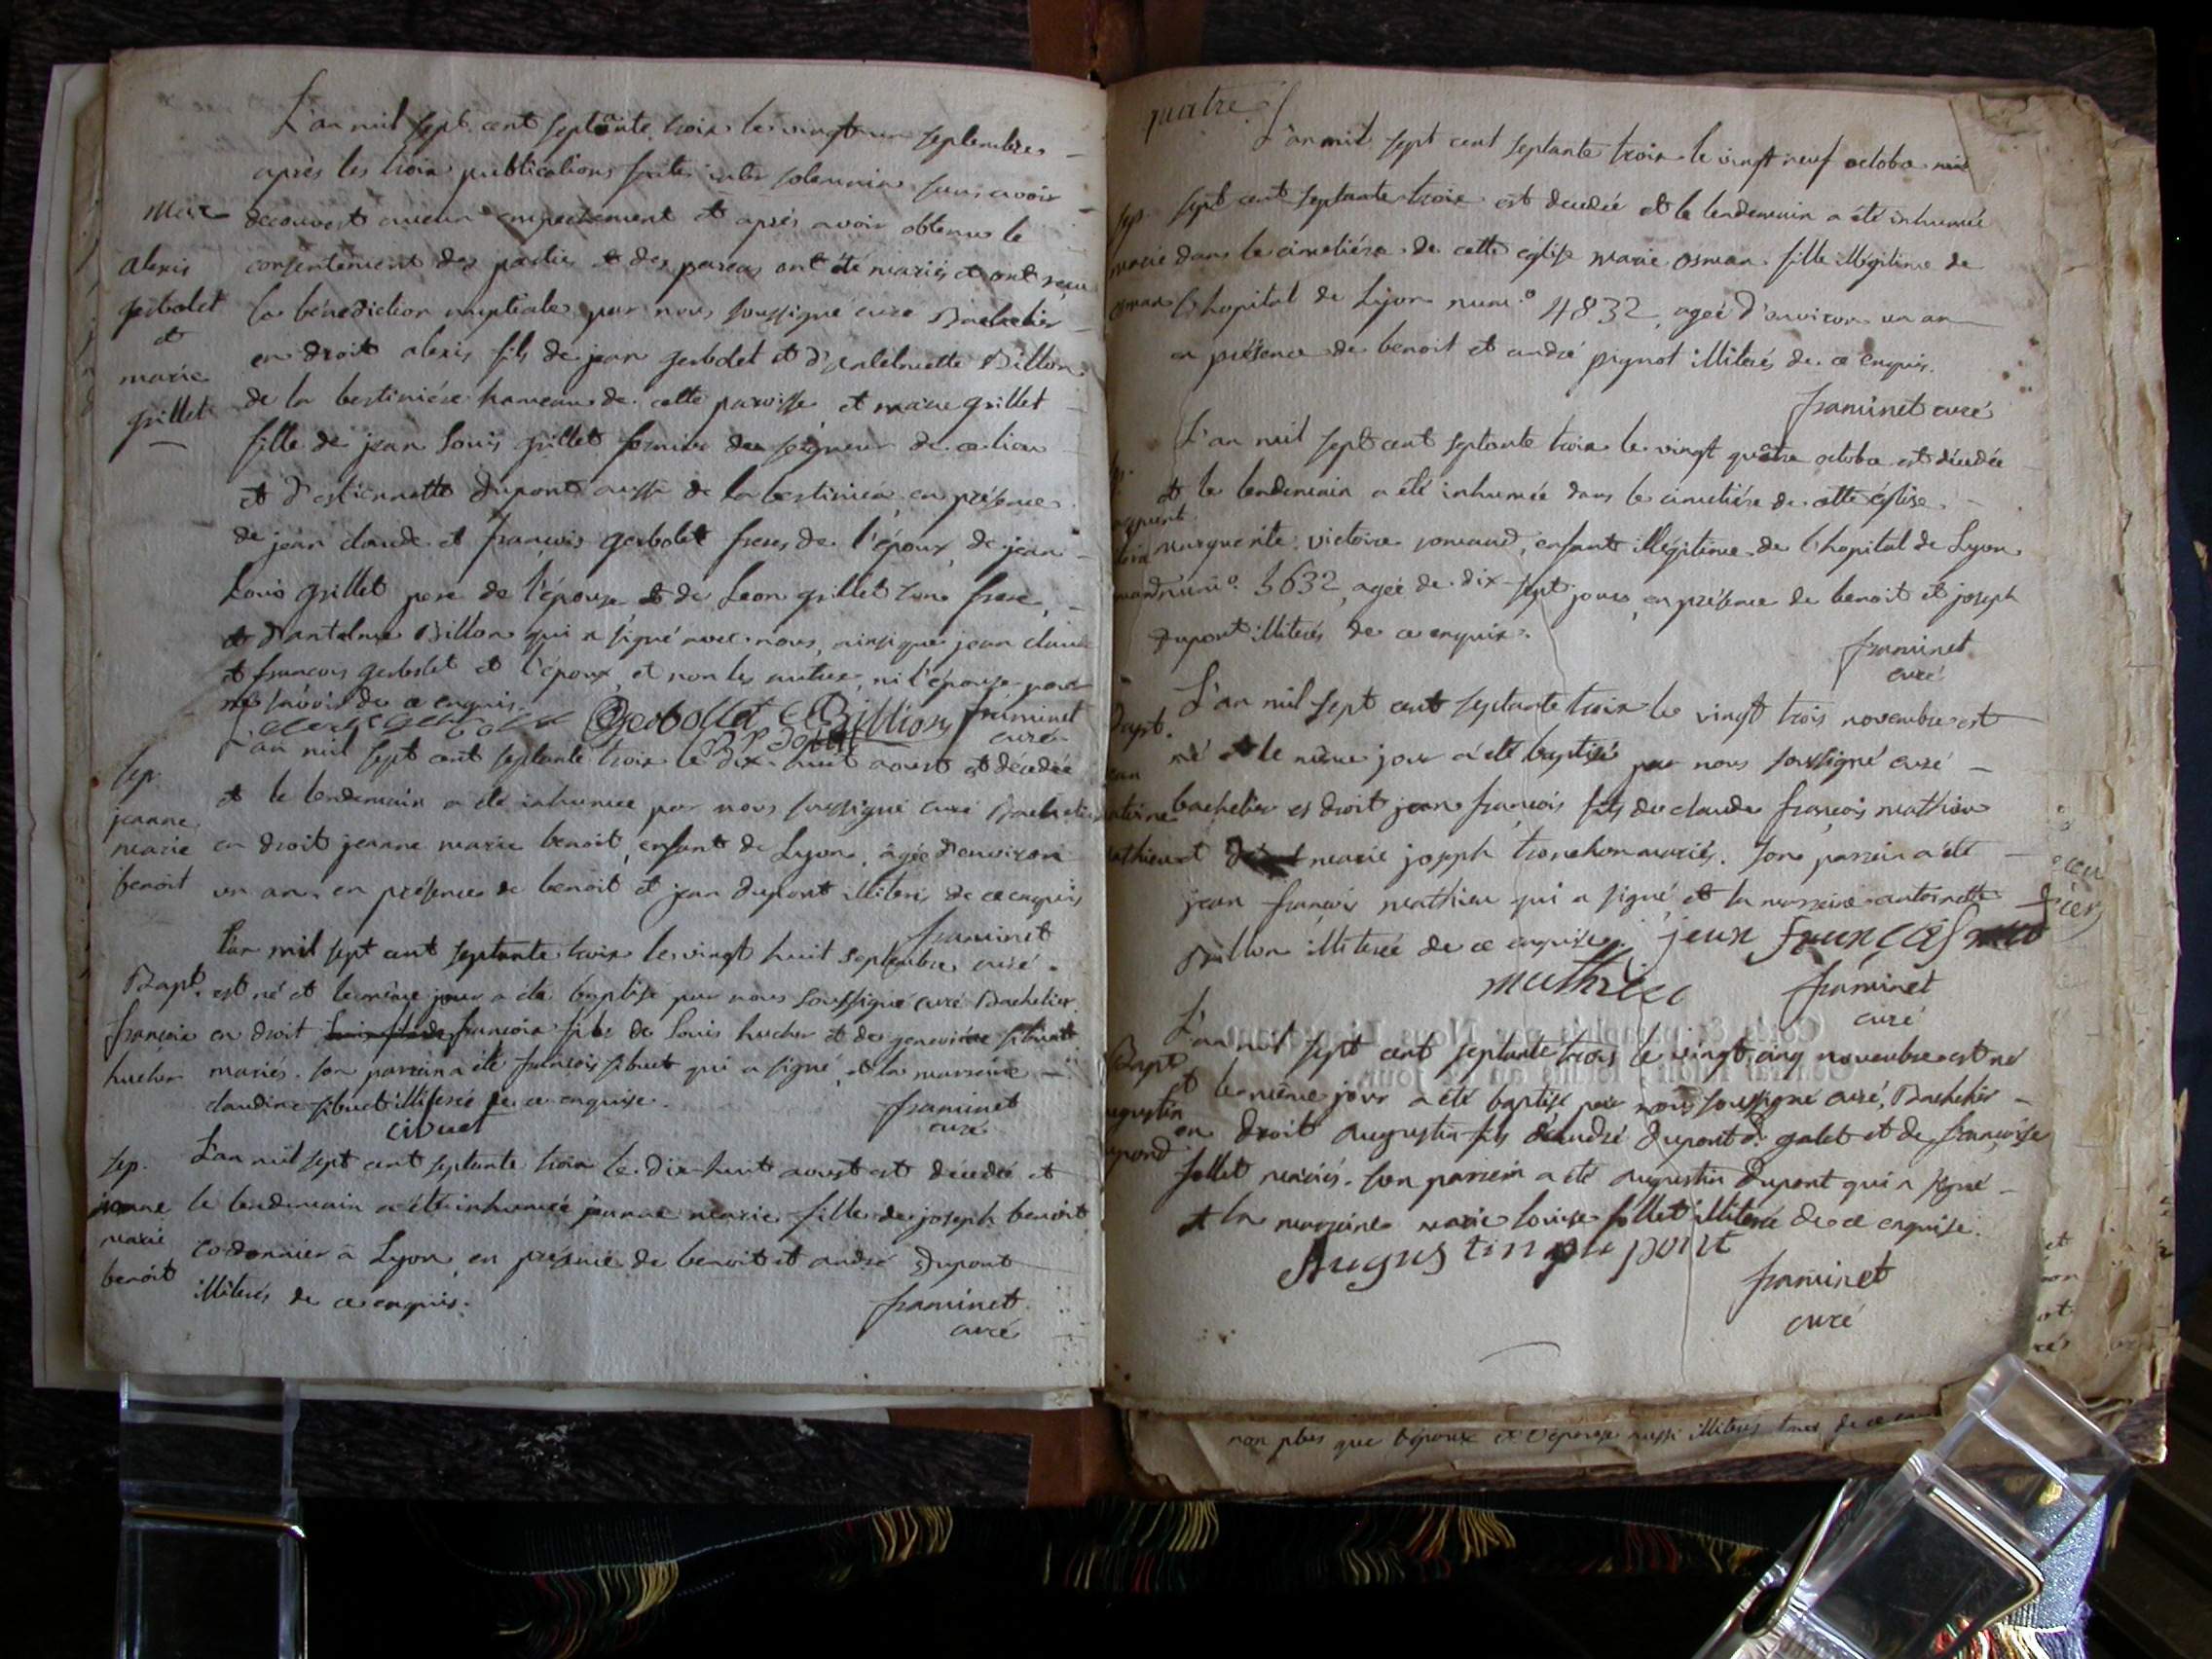 L'an mil sept cent septante trois le vingt un septembre
après les trois publications faites inter solemnia sans avoir
découvert aucun empechement et après avoir obtenu le
consentement des parties et des parens ont été mariés et ont reçu
la bénédiction nuptiale par nous soussigné curé Bachelier
en droit alexis fils de jean gerbolet et d' Billon
de la bestinière hameau de cette paroisse et marie grillet
fille de jean Louis grillet fermier du seigneur de ce lieu
et d'estiennette dupont aussi de la bestinière, en présence
de jean claude et françois gerbolet freres de l'époux, de jean
Louis grillet pere de l'épouse et de Leon grillet son frere,
et d'antelme Billon qui a signé avec nous, ainsi que jean claude
et francois gerbolet et l'époux, et non les autres, ni l'épouse pour
ne savoir de ce enquis.
Mar
alexis
gerbolet
et
marie
grillet
Gerbollet Billion framinet
curé
L'an mil sept cent septante trois le dix-huit aoust est décédée
et le lendemain a été inhumée par nous soussigné curé Bachelier
en droit jeanne marie benoit, enfant de Lyon, âgée d'environ
un an, en présence de benoit et jean dupont illiterés de ce enquis
framinet
curé.
sep.
jeanne
marie
benoit
L'an mil sept cent septante trois le vingt huit septembre
est né et le même jour a été baptisé par nous soussigné curé Bachelier
en droit françois fils de Louis hucher et de genevieve sibuet
mariés. son parrain a été françois sibuet qui a signé, et la marraine
claudine sibuet illiterée de ce enquise.
Bapt.
françois
hucher
civuet
framinet
curé
L'an mil sept cent septante trois le dix-huit aoust est décédée et
le lendemain a été inhumée jeanne marie fille de joseph benoit
cordonnier à Lyon, en présence de benoit et andré Dupont
illiterés de ce enquis.
sep.
jeanne
marie
benoit
framinet
curé
quatre
L'an mil sept cent septante trois le vingt neuf octobre mil
sept cent septante trois est décédée et le lendemain a été inhumée
dans le cimetière de cette église marie osman fille illégitime de
l'hopital de Lyon num.º 4832, agée d'environ un an
en présence de benoit et andré pignot illiterés de ce enquis.
sep.
marie
osman
framinet curé
L'an mil sept cent septante trois le vingt quatre octobre est décédée
et le lendemain a été inhumée dans le cimetière de cette église
marguerite victoire romand, enfant illégitime de l'hopital de Lyon
num.º 5632, agée de dix-sept jours, en présence de benoit et joseph
Dupont illiterés de ce enquis.
framinet
curé
L'an mil sept cent septante trois le vingt trois novembre est
né et le même jour a été baptisé par nous soussigné curé
bachelier es droit jean françois fils de claude françois mathieu
et marie joseph tronchon mariés. son parrain a été
jean françois mathieu qui a signé et la marraine antoinette
Billon illiterée de ce enquise. jean françois
mathieu
Bapt.
framinet
curé
L'an mil sept cent septante trois le vingt cinq novembre est né
et le même jour a été baptisé par nous soussigné curé, Bachelier
en droit Augustin fils d'andré Dupont d. galet et de françoise
follet mariés. son parrain a été Augustin Dupont qui a signé
et la marraine marie Louise follet illiterée de ce enquise.
Bapt.
Augustin du pont
framinet
curé
non plus que l'époux et l'épouse aussi illiterés tous de ce